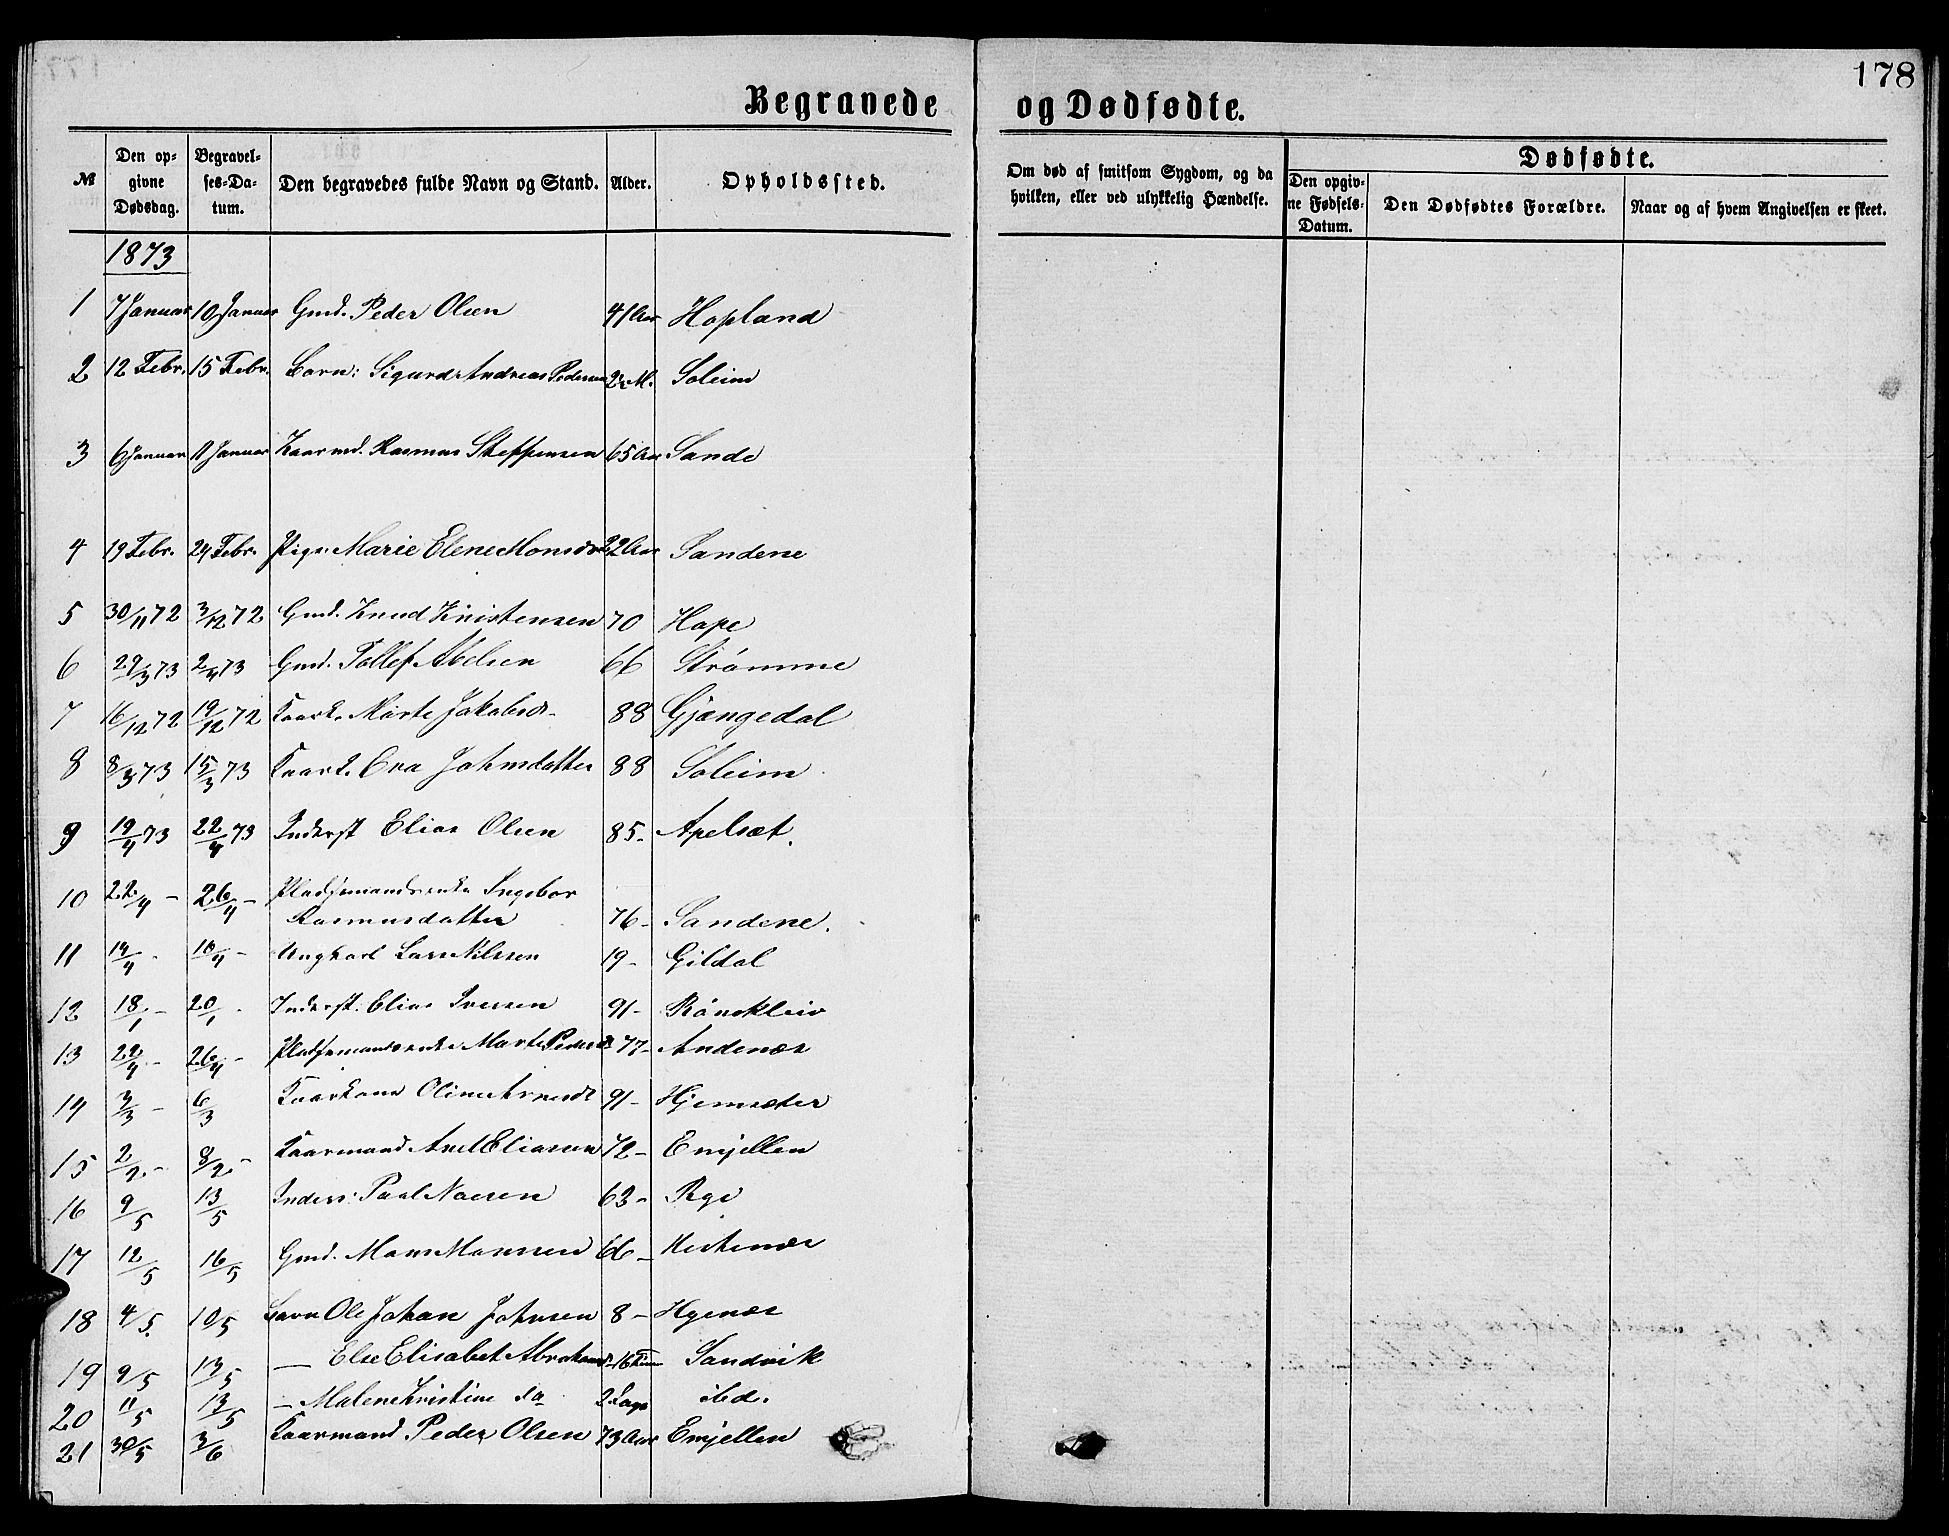 178
Begravede og Dødfødte.
№ Den opgivne Dødsdag. Begravelses-Datum. Den begravedes fulde Navn og Stand. Alder. Opholdssted. Om død af smitsom Sygdom, og da hvilken, eller ved ulykkelig Hændelse. Dødfødte. Den opgivne Fødsels-Datum. Den Dødfødtes Forældre. Naar og af hvem Angivelsen er skeet.
1873
1 7 Januar 10 Januar Gmd. Peder Olsen 41 Aar Hopland
2 12 Febr. 15 Febr. Barn: Sigurd Andreas Pedersen M. Soleim
3 6 Januar Januar Kaarmd. Rasmus Steffensen 65 Aar Sande
4 19 Febr. 24 Febr. Pige: Marie Elene Monsdr 22 Aar Sandene
5 30/11 72 3/12 72 Gmd. Knud Kristensen 70 Hope
6 29/3 73 2/4 73 Gmd. Tollef Abelsen 66 Strømme
7 16/12 72 19/12 72 Kaark. Marte Jakobsdr. 88 Gjengedal
8 8/3 73 15/3 73 Kaark. Eva Johnsdatter 88 Soleim
9 19/4 73 22/4 73 Inderst Elias Olsen 85 - Apelsæt.
10 22/4 - 26/4 - Pladsmandsenke Ingebor
Rasmusdatter 76 - Sandene.
11 14/4 - 18/4 - Ungkarl Lars Nilssen 19 - Gildal
12 18/1 - 20/1 - Inderst: Elias Iversen 91 - Rønekleiv
13 22/4 - 26/4 - Pladsmandsenke Marte Pedersd. 77 - Andenæs
14 3/3 - 6/3 Kaarkone Oline Arnesdt 91 - Hjemsæter
15 2/2 - 8/2 - Kaarmand Axel Eliasen 72 - Emjellen
16 9/5 13/5 Inders: Paul 63 - Ryg
17 12/5 16/5 Gmd. Mons Monssen 66 - Hestenæs
18 4/5. 10/5 Barn Ole Johan Johnsen 8 - Hyenæs
19 9/5 13/5 — Else Elisabet Abrahamsd. 16 Timer Sandvik
20 11/5 13/5 — Malene Kristine do 2 Dage ibd.
21 30/5 3/6 Kaarmand Peder Olsen 73 Aar Emjellen